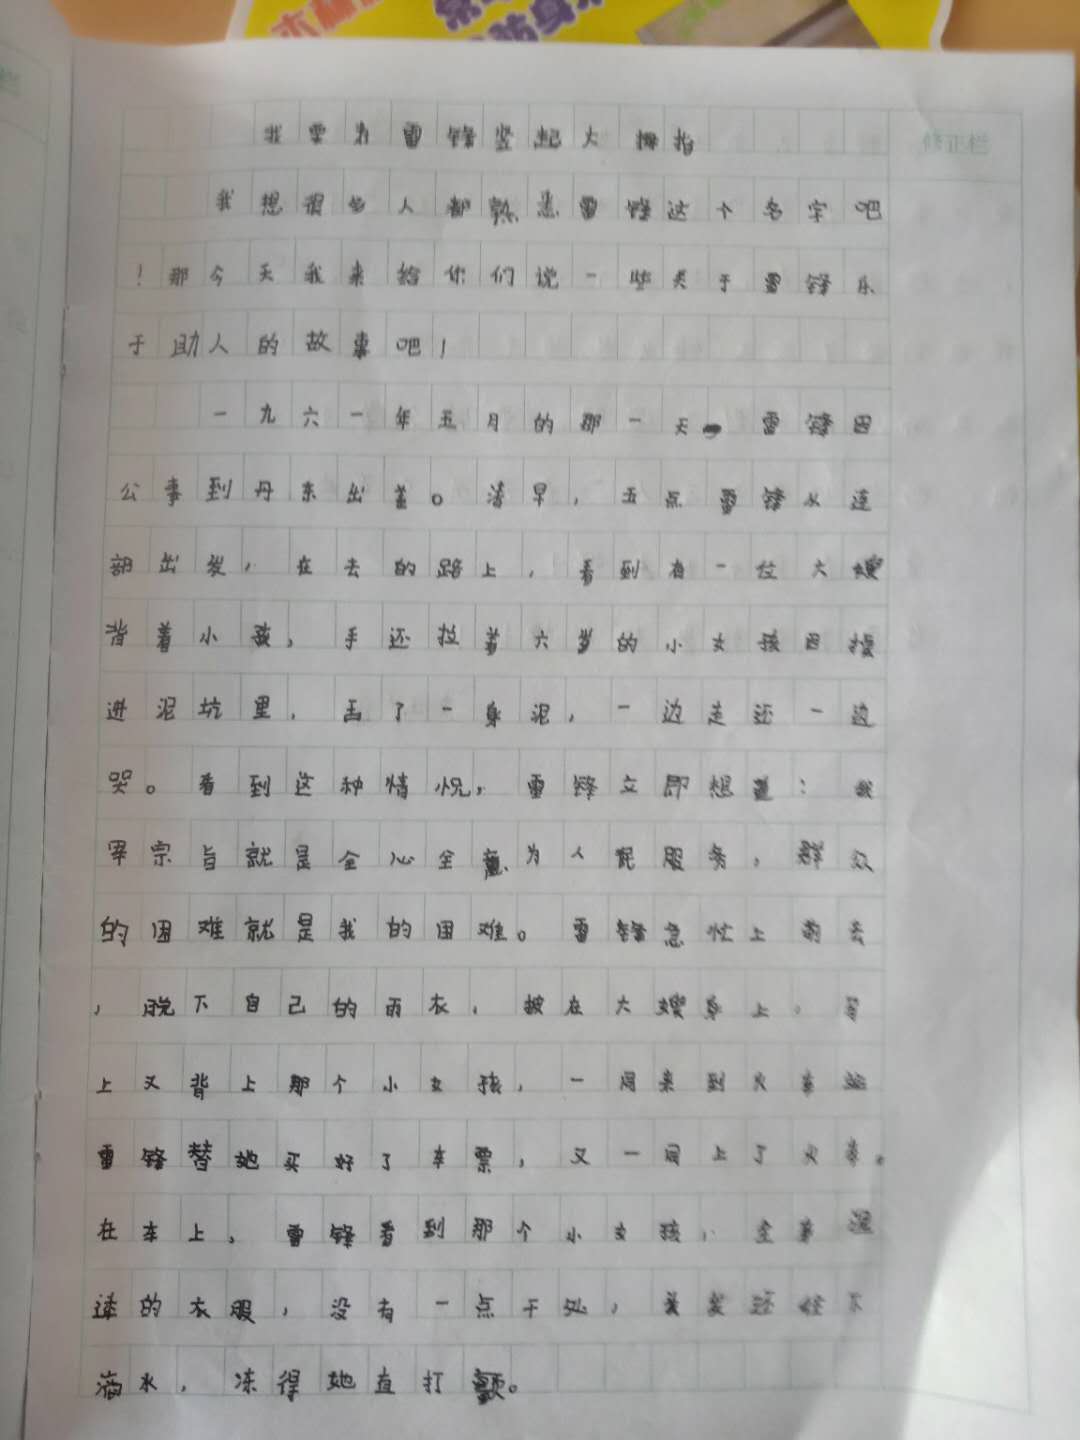 我要为雷锋竖起大拇指
修正栏
我想很多人都熟悉雷锋这个名字吧
！那今天我来给你们说一些关于雷锋乐
于助人的故事吧！
一九六一年五月的那一天 雷锋因
公事到丹东出差。清早，五点雷锋从连
部出发，在去的路上，看到有一位大嫂
背着小孩，手还拉着六岁的小女孩因
进泥坑里，弄了一身泥，一边走还一边
哭。看到这种情况，雷锋立即想道：我
军宗旨就是全心全意为人民服务，群众
的困难就是我的困难。雷锋急忙上前去
，脱下自己的雨衣，披在大嫂身上，
上又背上那个小女孩，一同来到火车站
雷锋替她买好了车票，又一同上了火车。
在车上，雷锋看到那个小女孩，全身湿
透的衣服，没有一点干处，头发还在不
滴水，冻得她直打颤。